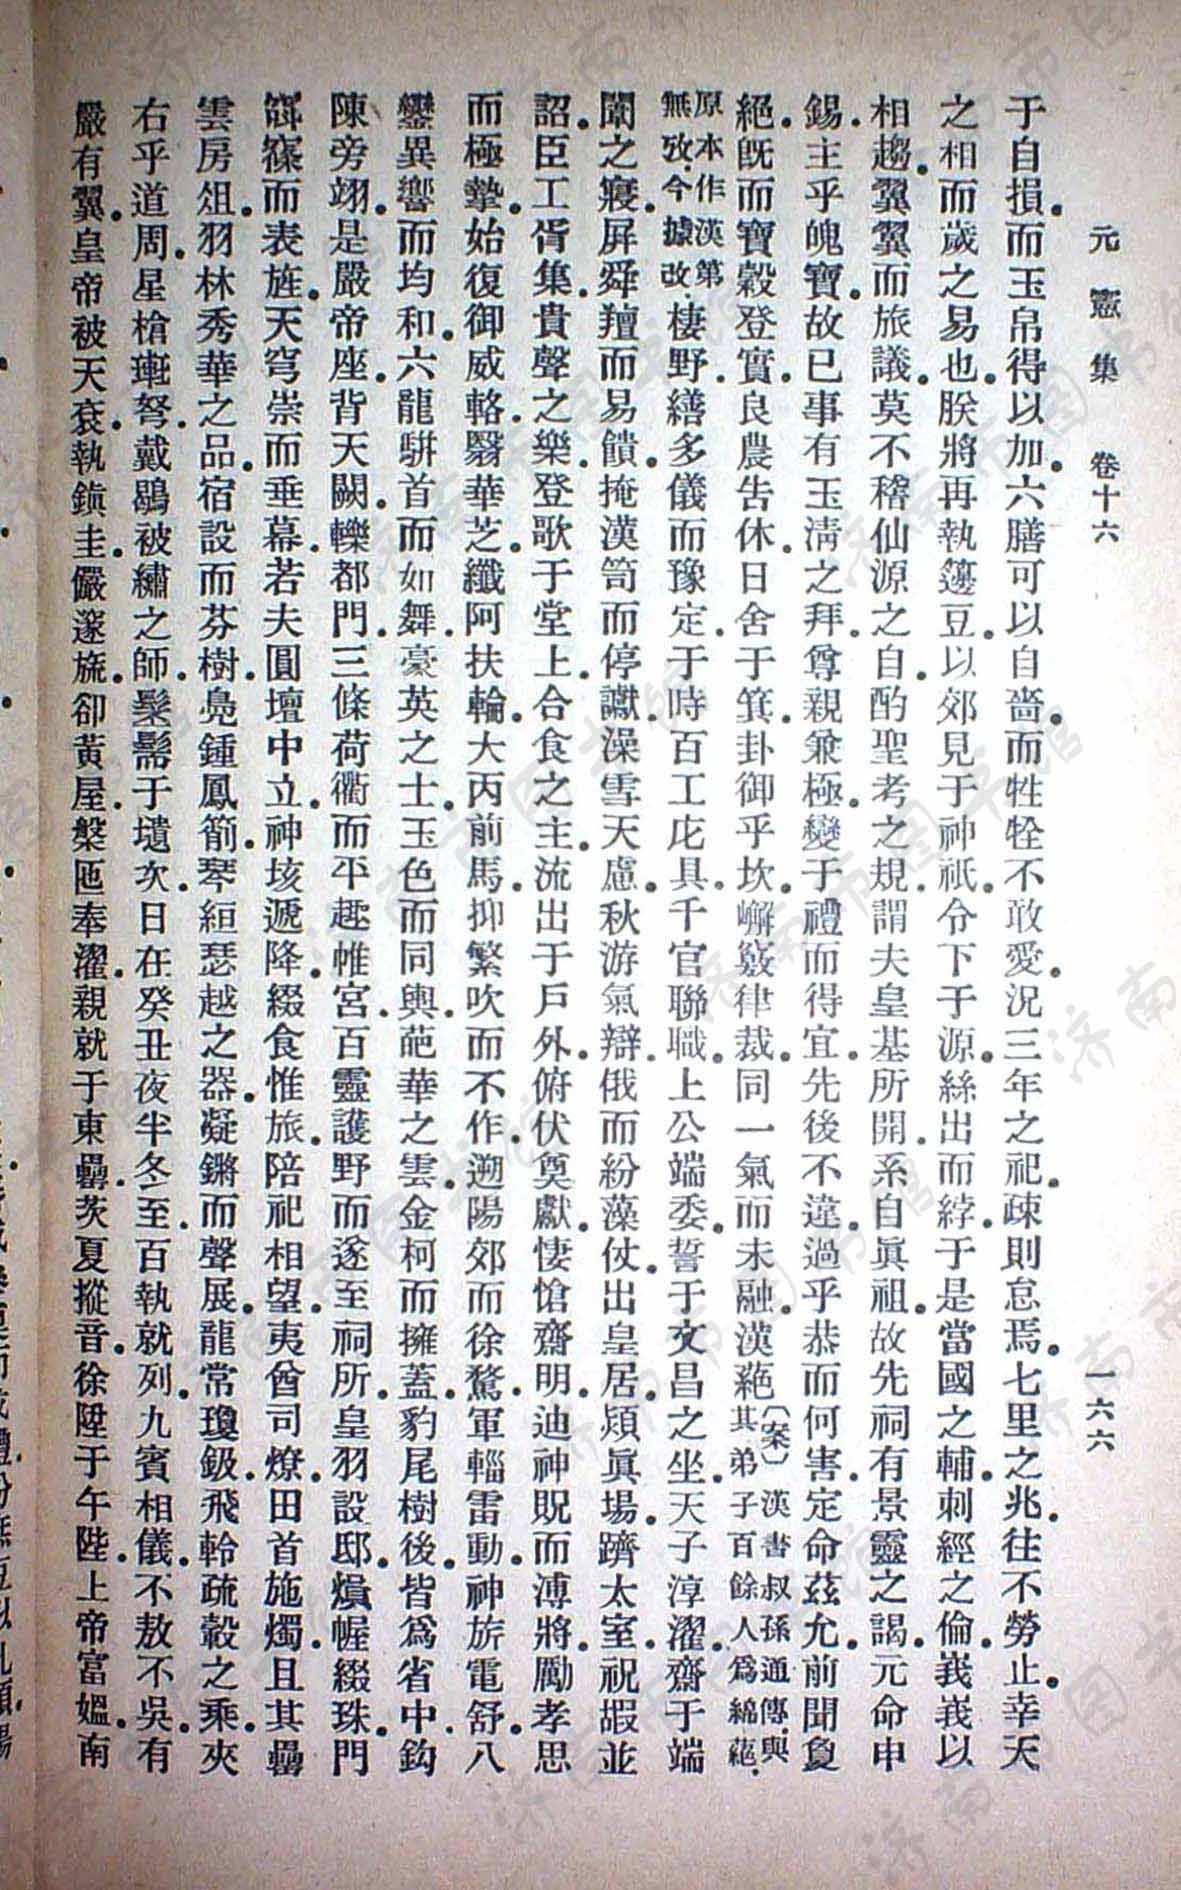 元憲集 卷十六 一六六
于自損。而玉帛得以加。六膳可以自嗇。而牲牷不敢愛。況三年之祀。疎則怠焉。七里之兆。往不勞止。幸天
之相而歲之易也。朕將再執籩豆。以郊見于神祇。令下于源。絲出而綍。于是當國之輔。刺經之倫。峩峩以
相趨。翼翼而旅議。莫不稽仙源之自。酌聖考之規。謂夫皇基所開。系自眞祖。故先祠有景靈之謁。元命申
錫。主乎皝寶。故已事有玉淸之拜。尊親兼極。變于禮而得宜。先後不違。過乎恭而何害。定命茲允。前聞敻
絕。旣而寶穀登實。良農告休。日舍于箕。卦御乎坎。嶰籔律裁。同一氣而未融。漢蕝〔案〕漢書叔孫通傳。與其弟子百餘人爲綿蕝。
原本作漢第無攷。今據改。棲野。繕多儀而豫定。于時百工庀具。千官聯職。上公端委。誓于文昌之坐。天子淳濯。齋于端
闈之寢。屏舜羶而易饋。掩漢笥而停讞。澡雪天慮。秋游氣辯。俄而紛藻仗。出皇居。熲眞場。躋太室。祝嘏並
詔。臣工胥集。貴聲之樂。登歌于堂上。合食之主。流出于戶外。俯伏奠獻。悽愴齋明。迪神貺而溥將。勵孝思
而極摯。始復御威輅。翳華芝。纖阿扶輪。大丙前馬。抑繁吹而不作。遡陽郊而徐騖。軍輜雷動。神旂電舒。八
鑾異響而均和。六龍騈首而如舞。豪英之士。玉色而同輿。葩華之雲。金柯而擁蓋。豹尾樹後。皆爲省中。鈎
陳旁翊。是嚴帝座。背天闕。轢都門。三條荷衢而平趨。帷宮百靈護野而遂至。祠所。皇羽設邸。熉幄綴珠。門
御幦而表旌。天穹崇而垂幕。若夫圓壇中立。神垓遞降。綴食惟旅。陪祀相望。夷酋司燎。田首施燭。且其罍
雲房俎。羽林秀華之品。宿設而芬樹。鳧鍾鳳箾。琴絚瑟越之器。凝鏘而聲展。龍常瓊鈒。飛軨疏轂之乘。夾
右乎道周。星槍琱弩。戴鶡被繡之師。髼髵于壝次。日在癸丑。夜半冬至。百執就列。九賓相儀。不敖不吳。有
嚴有翼。皇帝被天袞。執鎭圭。儼邃旒。卻黃屋。槃匜奉濯。親就于東罍。茨夏摐音。徐陞于午陛。上帝富媼。南